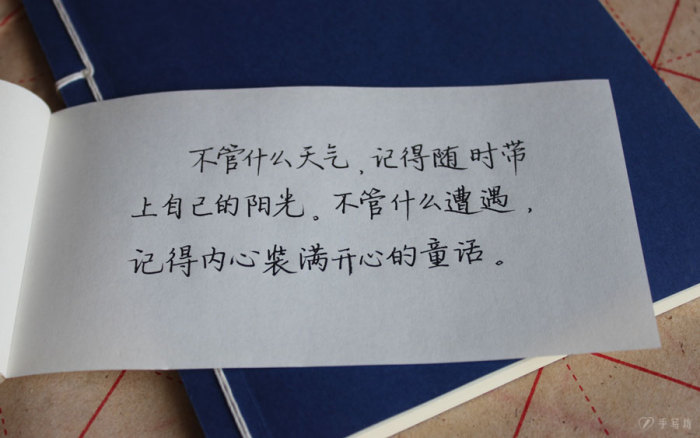 不管什么天气,记得随时带
上自己的阳光。不管什么遭遇,
记得内心装满开心的童话。
手写坊